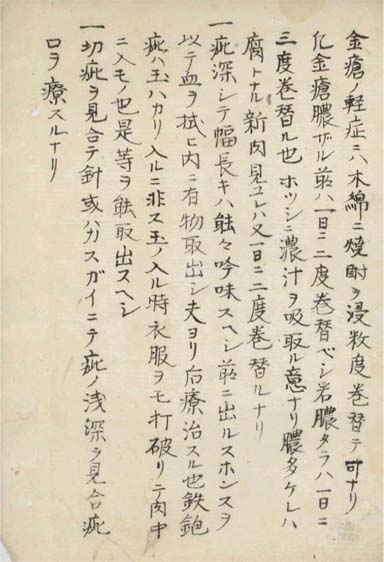 金瘡ノ軽症ニハ木綿ニ焼酎ヲ浸数度巻替テ可ナリ
亿金瘡膿ザル前ハ一日ニ二度巻替ベシ若膿タラハ一日ニ
三度巻替ル也ホツシニ濃汁ヲ吸取ル意ナリ膿多ケレハ
腐トナル新肉見ユレハ又一日ニ二度巻替ルナリ
一疵深シテ幅長キハ能々吟味スヘシ前ニ出ルスホンスヲ
以テ血ヲ拭ヒ内ニ有物取出シ夫ヨリ后療治スル也鉄鉋
疵ハ玉ハカリ入ルニ非ス玉ノ入ル時衣服ヲモ打破リテ肉中
ニ入モノ也是等ヲ能取出スヘシ
一切疵ヲ見合テ針或ハカスガイニテ疵ノ浅深ヲ見合疵
口ヲ療スルナリ